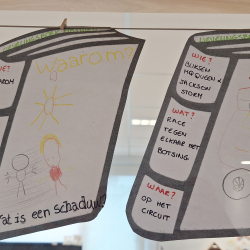 Waarom?
wat is een schaduw?
WIE?
BLIKSEM
MQQUEEN &
JACKSON
STORM
WAT?
RACE
TEGEN
ELKAAR MET
BOTSING.
WAAR?
OP HET
CIRCUIT